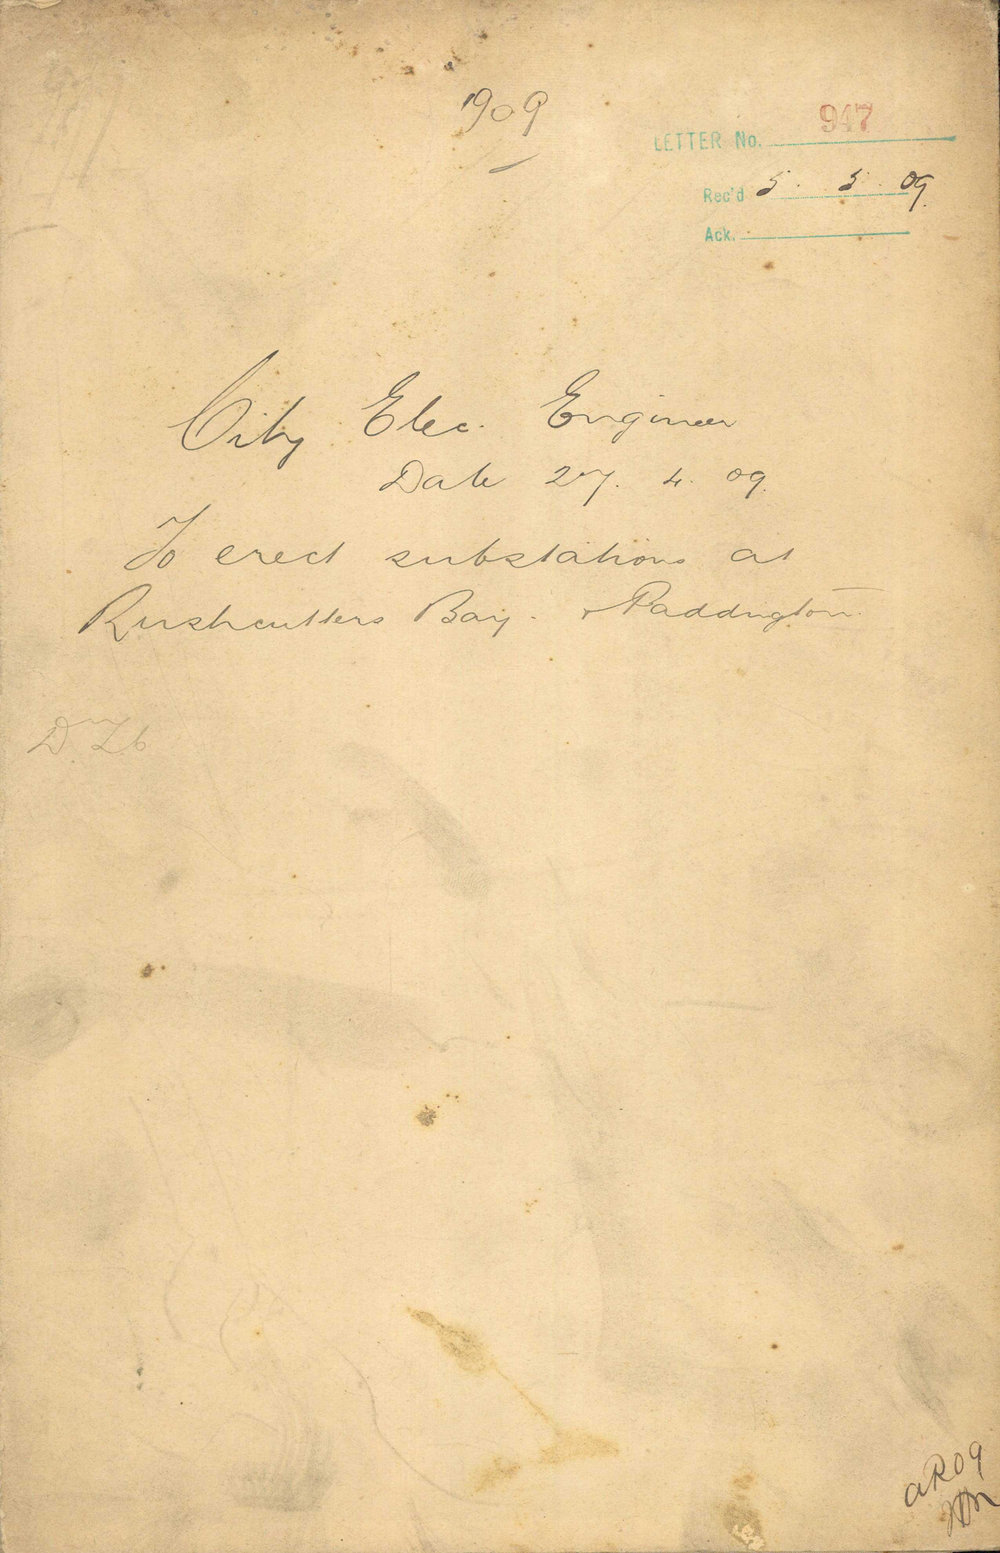 1909
LETTER No. 947
Rec'd 5. 5. 09.
Ack.
City Elec. Engineer
Date 27. 4. 09.
To erect substations at
Rushcutters Bay. & Paddington